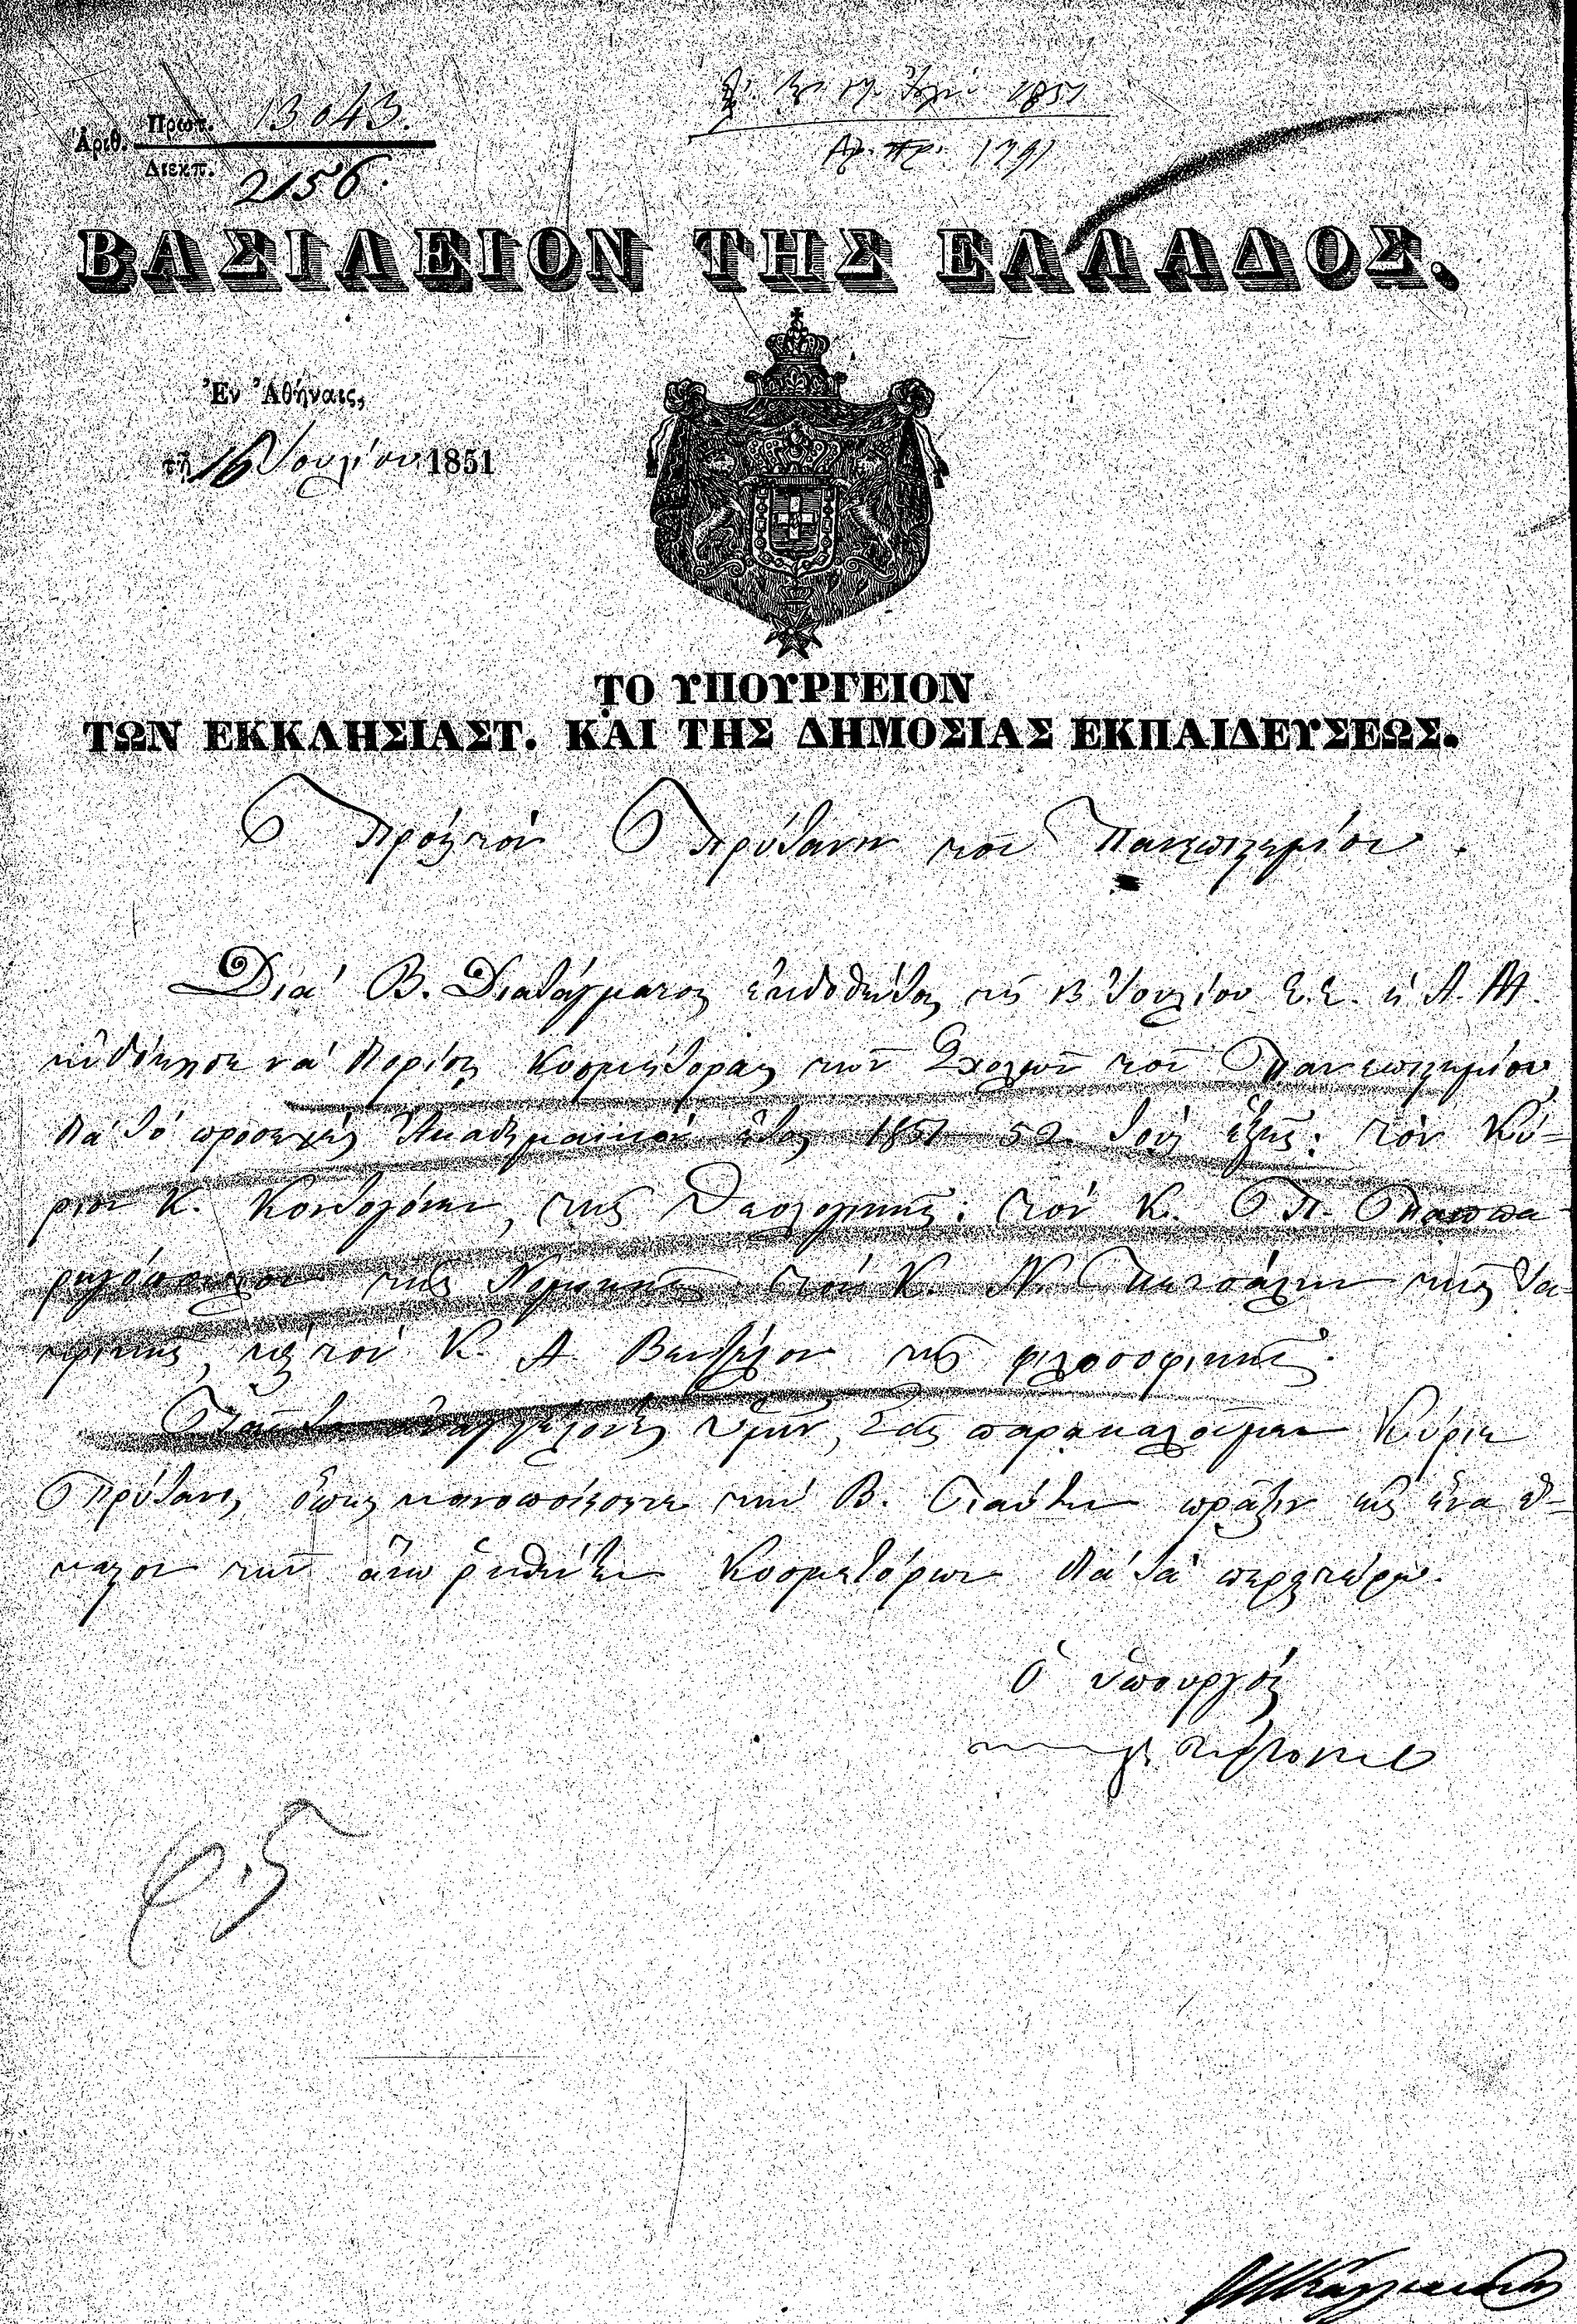 Ἀριθ. Πρωτ. 13043.
Διεκπ. 2156.
1851
Ἀρ. πρ. 1391
ΒΑΣΙΛΕΙΟΝ ΤΗΣ ΕΛΛΑΔΟΣ.
Ἐν Ἀθήναις,
τῇ 16 Ἰουλίου 1851
ΤΟ ΥΠΟΥΡΓΕΙΟΝ
ΤΩΝ ΕΚΚΛΗΣΙΑΣΤ. ΚΑΙ ΤΗΣ ΔΗΜΟΣΙΑΣ ΕΚΠΑΙΔΕΥΣΕΩΣ.
Πρὸς τὸν Πρύτανιν τοῦ Πανεπιστημίου.
Διὰ Β. Διατάγματος ἐκδοθέντος τῇ 13 Ἰουλίου ἡ Α. Μ.
ηὐδόκησε νὰ διορίσῃ Κοσμήτορας τῶν Σχολῶν τοῦ Πανεπιστημίου,
διὰ τὸ προσεχὲς Ἀκαδημαϊκὸν ἔτος 1851 52 τοὺς ἑξῆς: τὸν Κύ-
ριον Κ. Κοντογόνην, τῆς Θεολογικῆς. τὸν Κ. Π. Παππα-
ρηγόπουλον τῆς Νομικῆς. τὸν Κ. Ν. Κωστῆν τῆς Ἰα-
τρικῆς, καὶ τὸν Κ. Α. Βενθύλον τῆς φιλοσοφικῆς.
Ταῦτα ὑμῖν, Σᾶς παρακαλοῦμεν Κύριε
Πρύτανι, ὅπως κοινοποιήσητε τὴν Β. ταύτην πρᾶξιν εἰς ἕνα ἕ-
καστον τῶν ἄνω ῥηθέντων Κοσμητόρων διὰ τὰ περαιτέρω.
Ὁ ὑπουργὸς
Φ. 5